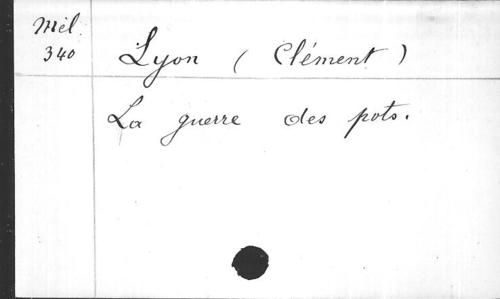 Mél.
340
Lyon ( Clément )
La guerre des pots.